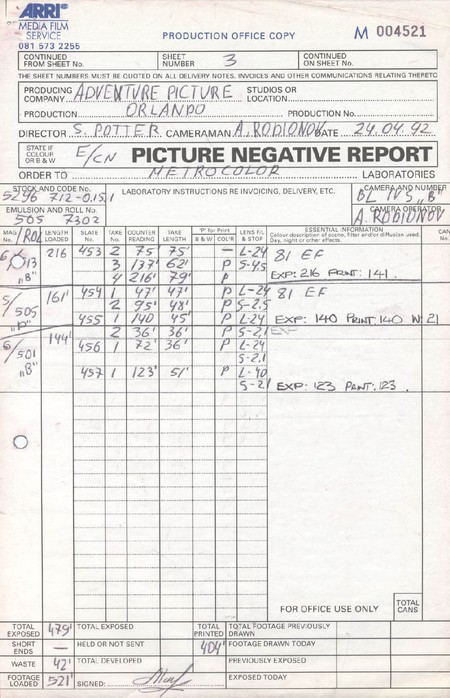 ARRI
MEDIA FILM
SERVICE
081 573 2255
PRODUCTION OFFICE COPY
M 004521
CONTINUED FROM SHEET No.
SHEET NUMBER 3
CONTINUED ON SHEET No.
THE SHEET NUMBERS MUST BE QUOTED ON ALL DELIVERY NOTES, INVOICES AND OTHER COMMUNICATIONS RELATING THERETO
PRODUCING COMPANY ADVENTURE PICTURE STUDIOS OR LOCATION
PRODUCTION ORLANDO PRODUCTION No.
DIRECTOR S. POTTER CAMERAMAN A. RODIONOV DATE 24.04.92
STATE IF COLOUR OR B & W E/CN PICTURE NEGATIVE REPORT
ORDER TO METROCOLOR LABORATORIES
STOCK AND CODE No. LABORATORY INSTRUCTIONS RE INVOICING, DELIVERY, ETC. CAMERA AND NUMBER
5296 712-0151 BL IVS "B"
EMULSION AND ROLL No. CAMERA OPERATOR
505 7302 A. RODIONOV
MAG No. ROLL LENGTH LOADED SLATE No. TAKE No. COUNTER READING TAKE LENGTH 'P' for Print B & W COL'R LENS F/L & STOP ESSENTIAL INFORMATION
Colour description of scene, filter and/or diffusion used. Day, night or other effects.
216 453 2 75' 75' — L-24 81 EF
3 137' 62' P S-4.5
"B" 4 216' 79' P EXP: 216 PRINT: 141
5/ 161' 454 1 47' 47' P L-24 81 EF
505 2 95' 48' P S-2.5
455 1 140 45' P L-24 EXP: 140 PRINT: 140 W: 21
6/ 144' 2 36' 36' P S-2.1
501 456 1 72' 36' P L-24
"B" S-2.1
457 1 123' 51' P L-40
S-2.1 EXP: 123 PRINT: 123
FOR OFFICE USE ONLY TOTAL CANS
TOTAL EXPOSED 479' TOTAL EXPOSED TOTAL PRINTED 404' TOTAL FOOTAGE PREVIOUSLY DRAWN
SHORT ENDS — HELD OR NOT SENT FOOTAGE DRAWN TODAY
WASTE 42' TOTAL DEVELOPED PREVIOUSLY EXPOSED
FOOTAGE LOADED 521' SIGNED: EXPOSED TODAY